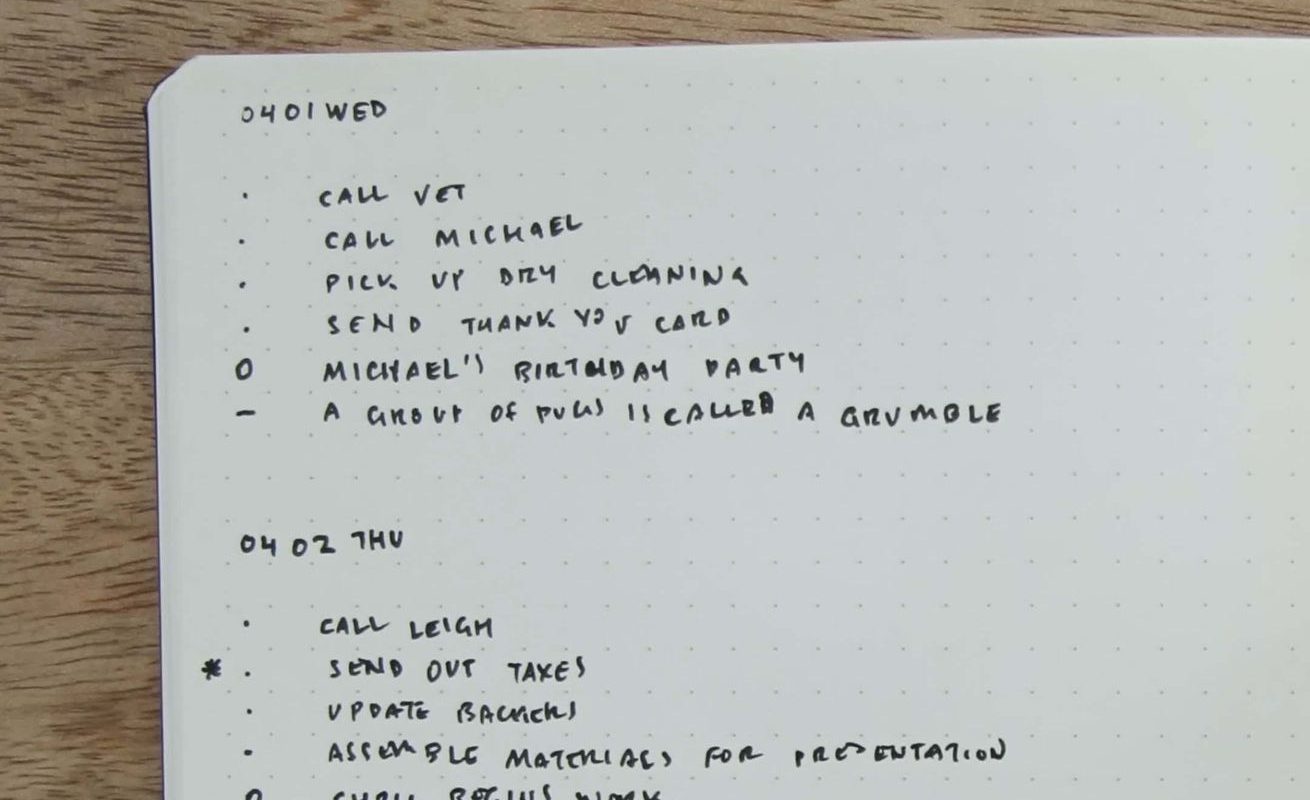 0401 WED
· CALL VET
· CALL MICHAEL
· PICK UP DRY CLEANING
· SEND THANK YOU CARD
O MICHAEL'S BIRTHDAY PARTY
– A GROUP OF PUGS IS CALLED A GRUMBLE
04 02 THU
· CALL LEIGH
* · SEND OUT TAXES
· UPDATE BACKERS
· ASSEMBLE MATERIALS FOR PRESENTATION
O BEGINS WORK